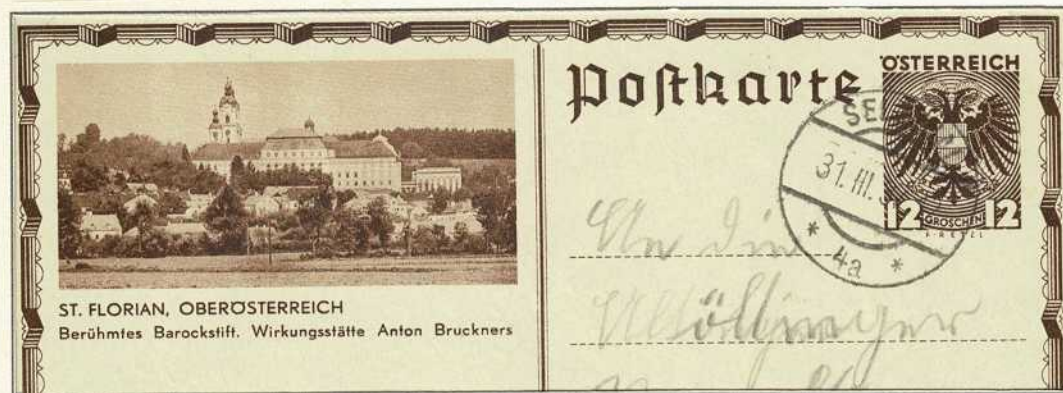 ST. FLORIAN, OBERÖSTERREICH
Berühmtes Barockstift. Wirkungsstätte Anton Bruckners
Postkarte
ÖSTERREICH
12 GROSCHEN 12
31. III.
* 4a *
An die